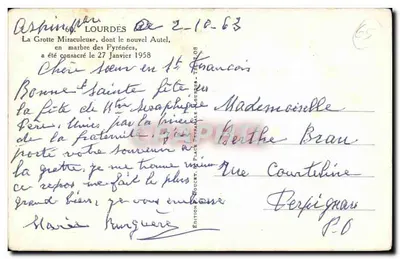 LOURDES
le 2-10-63
La Grotte Miraculeuse, dont le nouvel Autel,
en marbre des Pyrénées,
a été consacré le 27 Janvier 1958
Chère sœur en St François
Bonne et sainte fête en
la fête de Séraphique
Père, Unis par la prière
de la fraternité
porte votre souvenir à
la grotte, je me trouve mieux
ce repos me fait le plus
grand bien, je vous embrasse
Marie
Mademoiselle
Berthe Brau
Rue Courteline
Perpignan
P.O